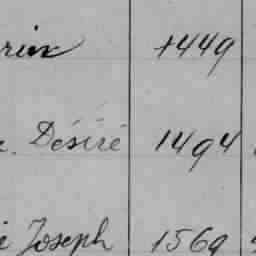 rin 1449
. Désiré 1494
é Joseph 1569